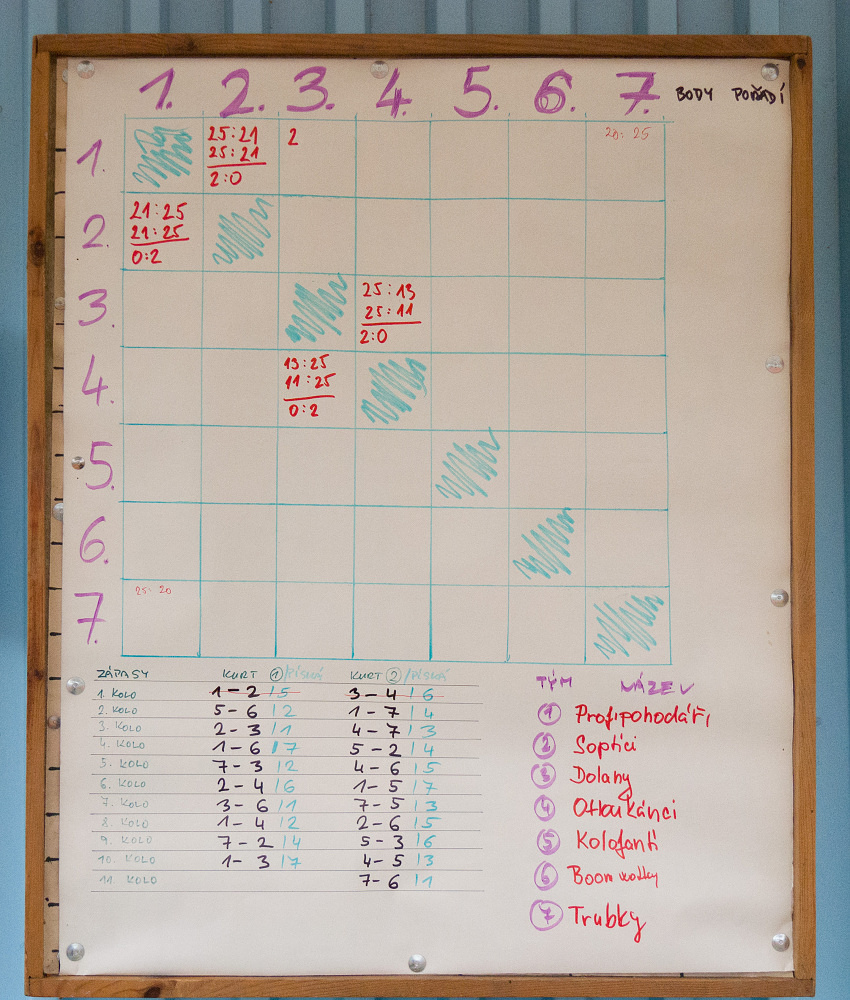 1. 2. 3. 4. 5. 6. 7. BODY POŘADÍ
1. 25:21 2 20:25
25:21
2:0
2. 21:25
21:25
0:2
3. 25:13
25:11
2:0
4. 13:25
11:25
0:2
5.
6.
7. 25:20
ZÁPASY KURT 1/PÍSKÁ KURT 2/PÍSKÁ
1. KOLO 1-2/5 3-4/6
2. KOLO 5-6/2 1-7/4
3. KOLO 2-3/1 4-7/3
4. KOLO 1-6/7 5-2/4
5. KOLO 7-3/2 4-6/5
6. KOLO 2-4/6 1-5/7
7. KOLO 3-6/1 7-5/3
8. KOLO 1-4/2 2-6/5
9. KOLO 7-2/4 5-3/6
10. KOLO 1-3/7 4-5/3
11. KOLO 7-6/1
TÝM NÁZEV
1 Profipohodáři
2 Soptíci
3 Dolany
4 Otloukánci
5 Kolofanti
6 Boom
7 Trubky